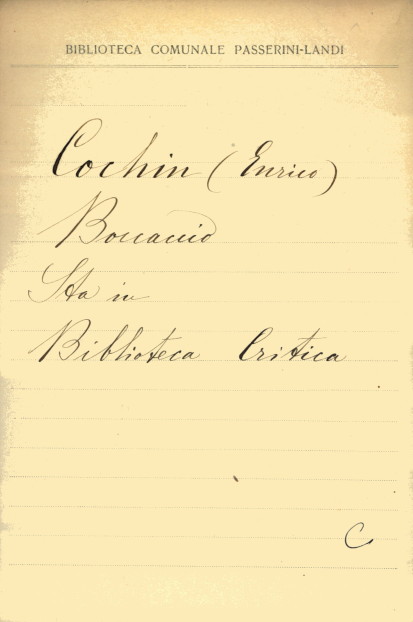 BIBLIOTECA COMUNALE PASSERINI-LANDI
Cochin (Enrico)
Boccaccio
Sta in
Biblioteca Critica
C